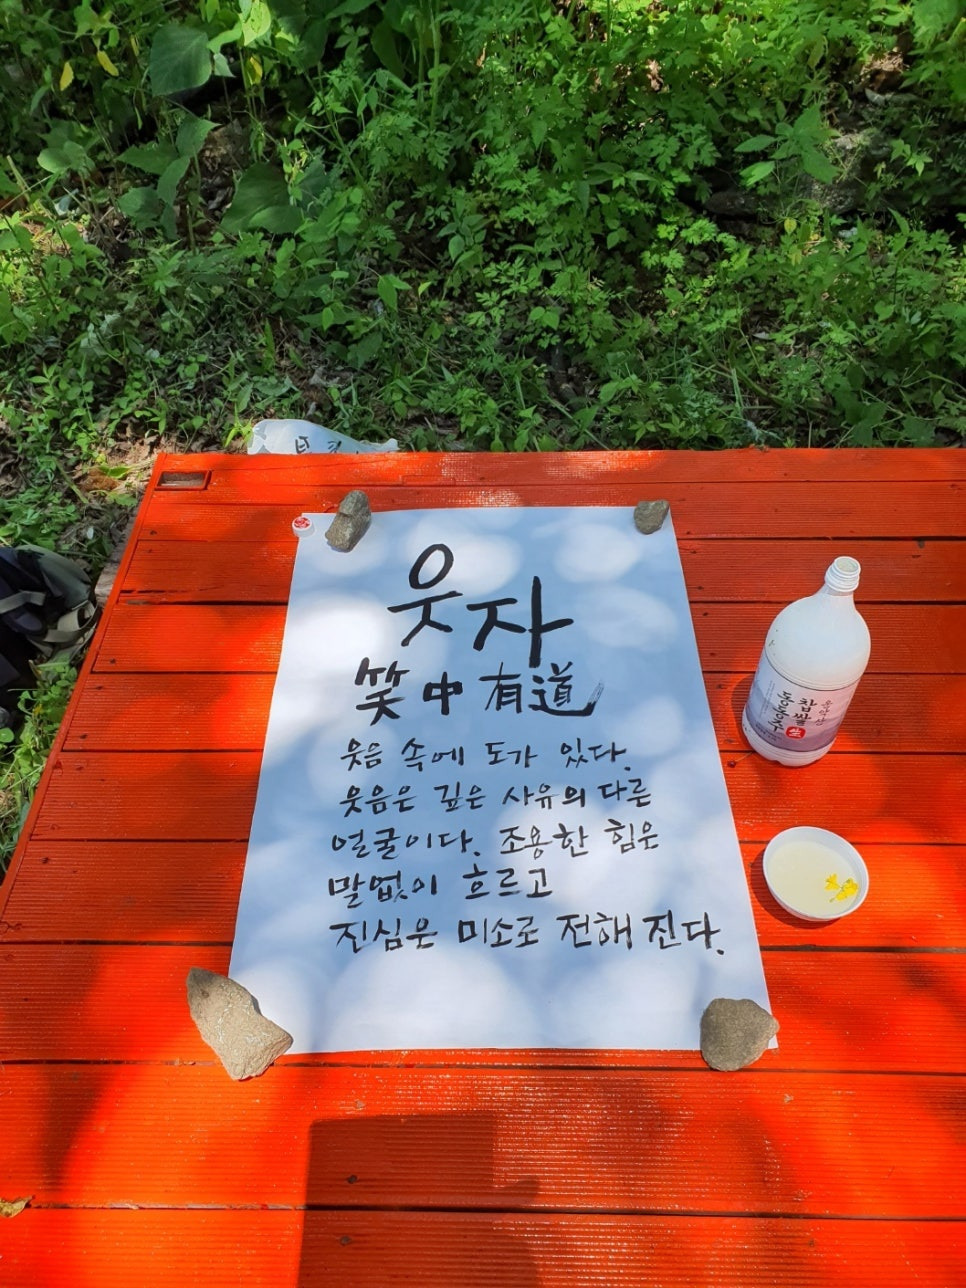 웃자
笑中有道
웃음 속에 도가 있다.
웃음은 깊은 사유의 다른
얼굴이다. 조용한 힘은
말없이 흐르고
진심은 미소로 전해 진다.
찹쌀
동동주